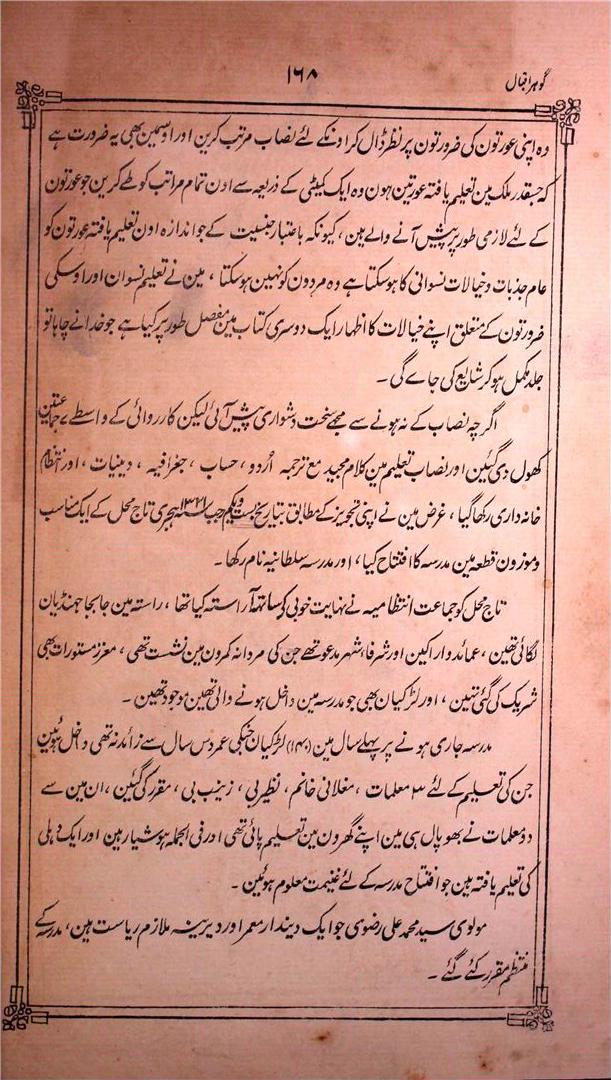 گوہر اقبال
۱۶۸
وہ اپنی عورتون کی ضرورتون پر نظر ڈال کر اونکے لئے نصاب مرتب کرین اور اوسمین بھی یہ ضرورت ہے
کہ جسقدر ملک مین تعلیم یافتہ عورتین ہون وہ ایک کمیٹی کے ذریعہ سے اون تمام مراتب کو طے کرین جو عورتون
کے لئے لازمی طور پر پیش آنے والے ہین، کیونکہ باعتبار جنسیت کے جو اندازہ اون تعلیم یافتہ عورتون کو
عام جذبات و خیالات نسوانی کا ہوسکتا ہے وہ مردون کو نہین ہوسکتا ، مین نے تعلیم نسوان اور اوسکی
ضرورتون کے متعلق اپنے خیالات کا اظہار ایک دوسری کتاب مین مفصل طور پر کیا ہے جو خدا نے چاہا تو
جلد مکمل ہوکر شایع کی جاے گی ۔
اگرچہ نصاب کے نہ ہونے سے مجھے سخت دشواری پیش آئی لیکن کارروائی کے واسطے ۷ جماعتین
کھول دی گئین اور نصاب تعلیم مین کلام مجید مع ترجمہ اُردو ، حساب ، جغرافیہ ، دینیات ، اور انتظام
خانہ داری رکھا گیا ، غرض مین نے اپنی تجویز کے مطابق بتاریخ بست ویکم رجب ۱۳۲۱ ہجری تاج محل کے ایک مناسب
و موزون قطعہ مین مدرسہ کا افتتاح کیا ، اور مدرسہ سلطانیہ نام رکھا ۔
تاج محل کو جماعت انتظامیہ نے نہایت خوبی کو ساتھ آراستہ کیا تھا ، راستہ مین جابجا جھنڈیان
لگائی تھین ، عمائد و اراکین اور شرفاء شہر مدعو تھے جن کی مردانہ کمرون مین نشست تھی ، معزز مستورات بھی
شریک کی گئی تہین ، اور لڑکیان بھی جو مدرسہ مین داخل ہونے والی تھین موجود تھین ۔
مدرسہ جاری ہونے پر پہلے سال مین (۱۴۰) لڑکیان جنکی عمر دس سال سے زائد نہ تھی داخل ہوئین
جن کی تعلیم کے لئے ۳ معلمات ، مغلانی خانم ، نظیر بی ، زینب بی ، مقرر کی گئین ، ان مین سے
دو معلمات نے بھوپال ہی مین اپنے گھرون مین تعلیم پائی تھی اور فی الجملہ ہوشیار ہین اور ایک دہلی
کی تعلیم یافتہ ہین جو افتتاح مدرسہ کے لئے غنیمت معلوم ہوئین ۔
مولوی سید محمد علی رضوی جو ایک دیندار معمر اور دیرینہ ملازم ریاست ہین ، مدرسہ کے
منتظم مقرر کئے گئے ۔